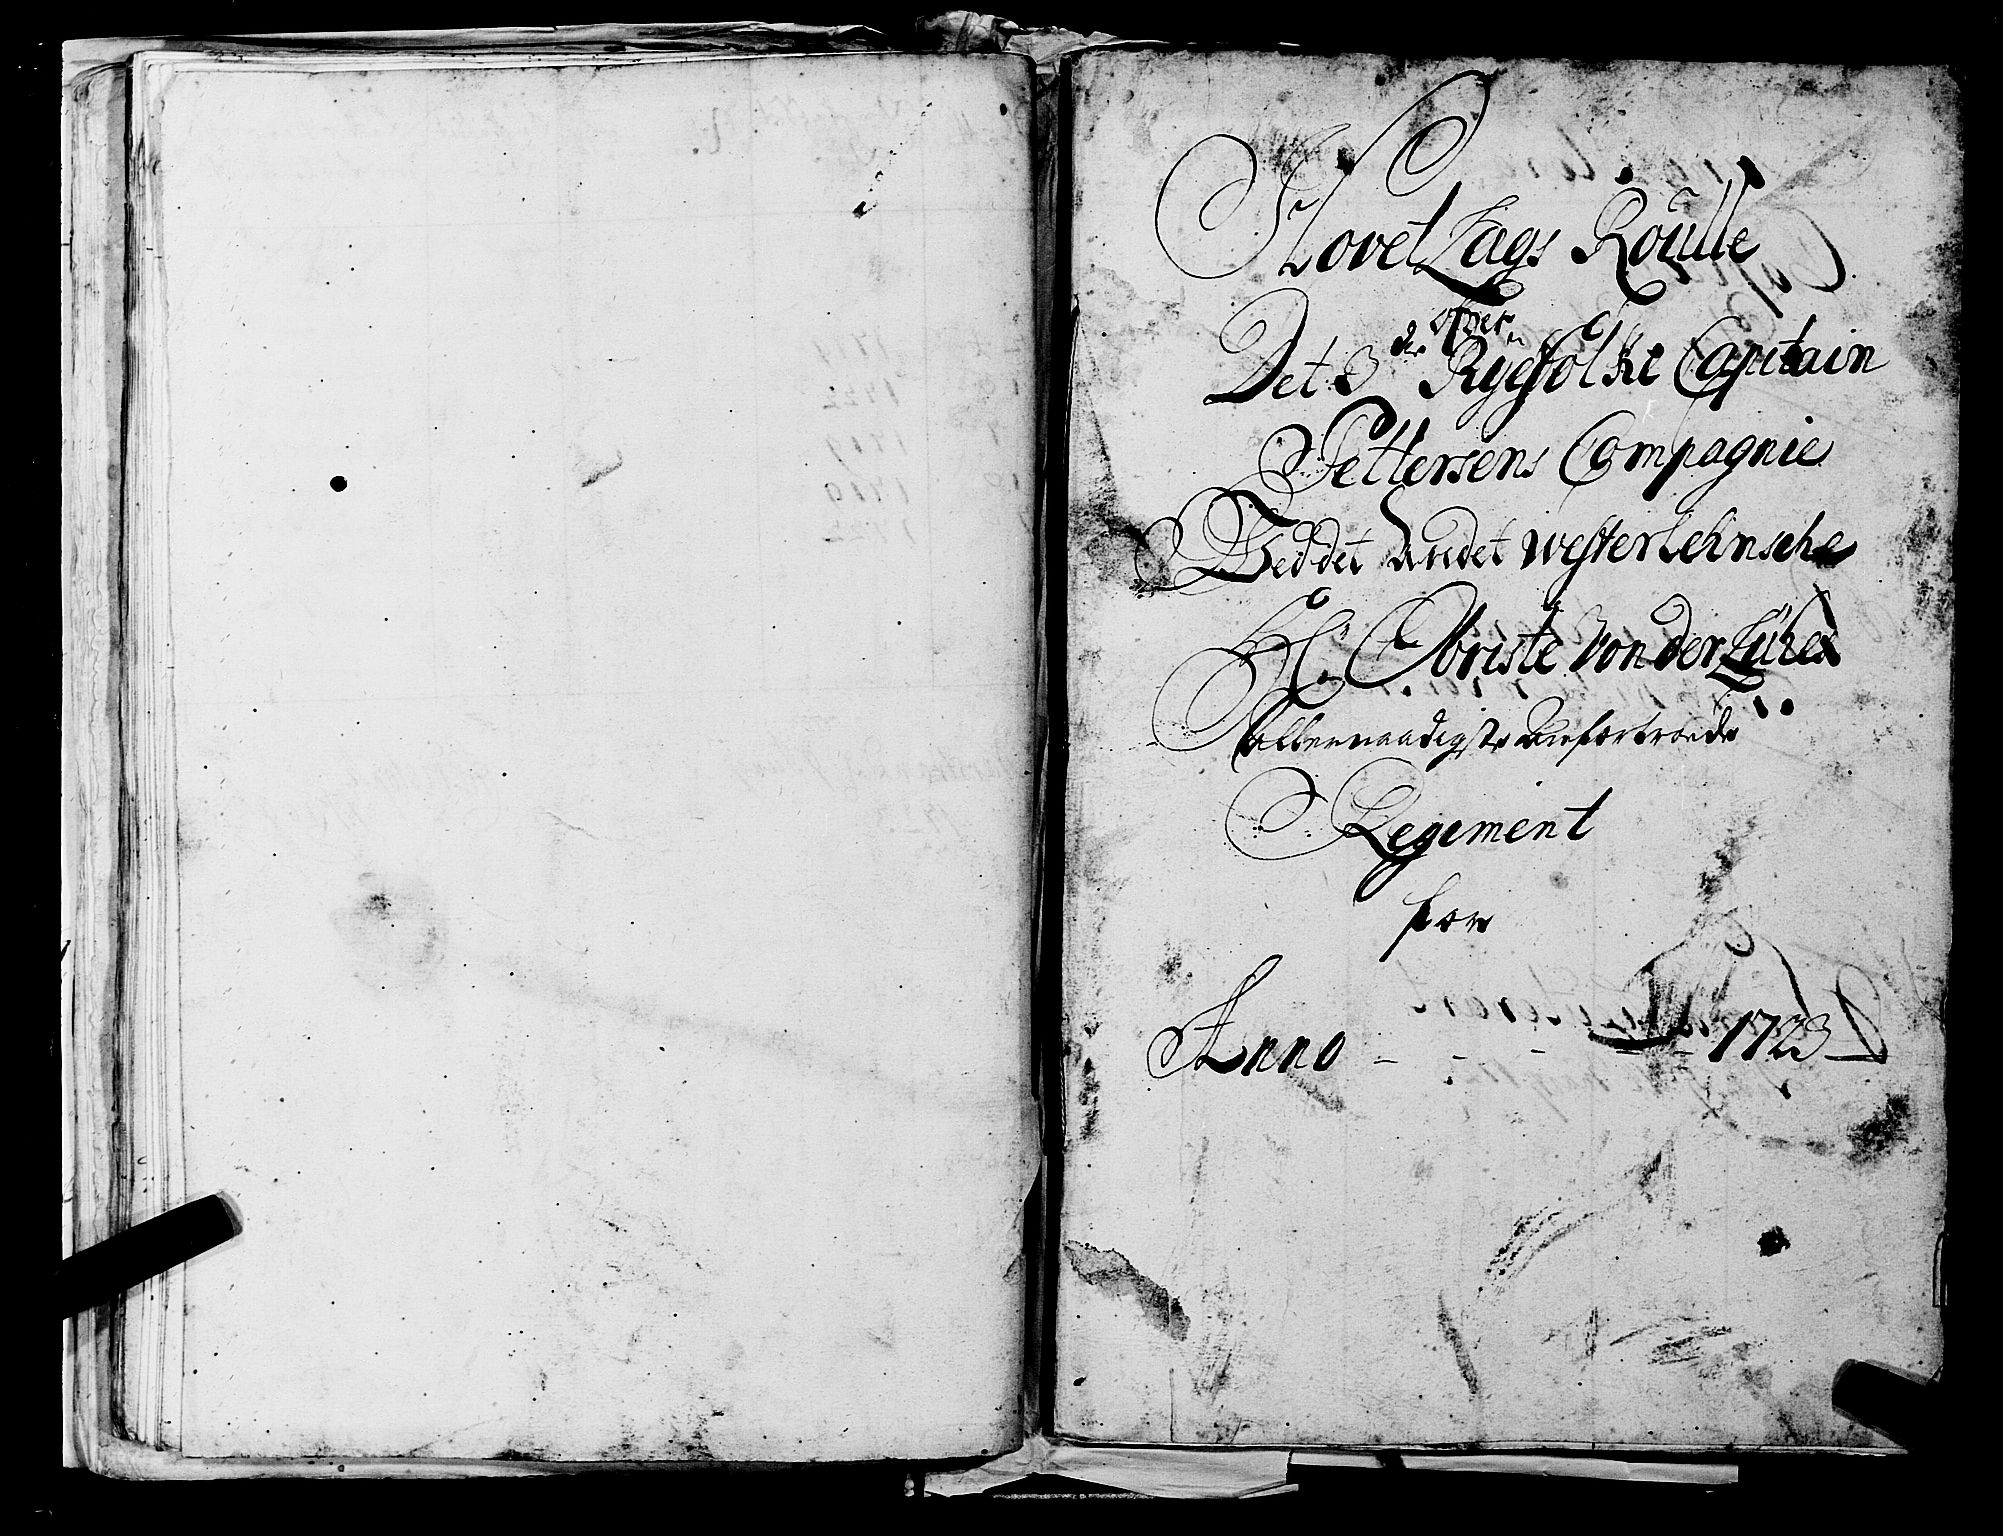 Hovet Lags Roulle
over
Det 3de Ryefölke Capitain
Pettersens Compagnie
Ved det Andet westerlehnsche
Hr. Obriste Von der Lühes
allernaadigste Anfortroede
Regiment
for
Anno - - - - 1723